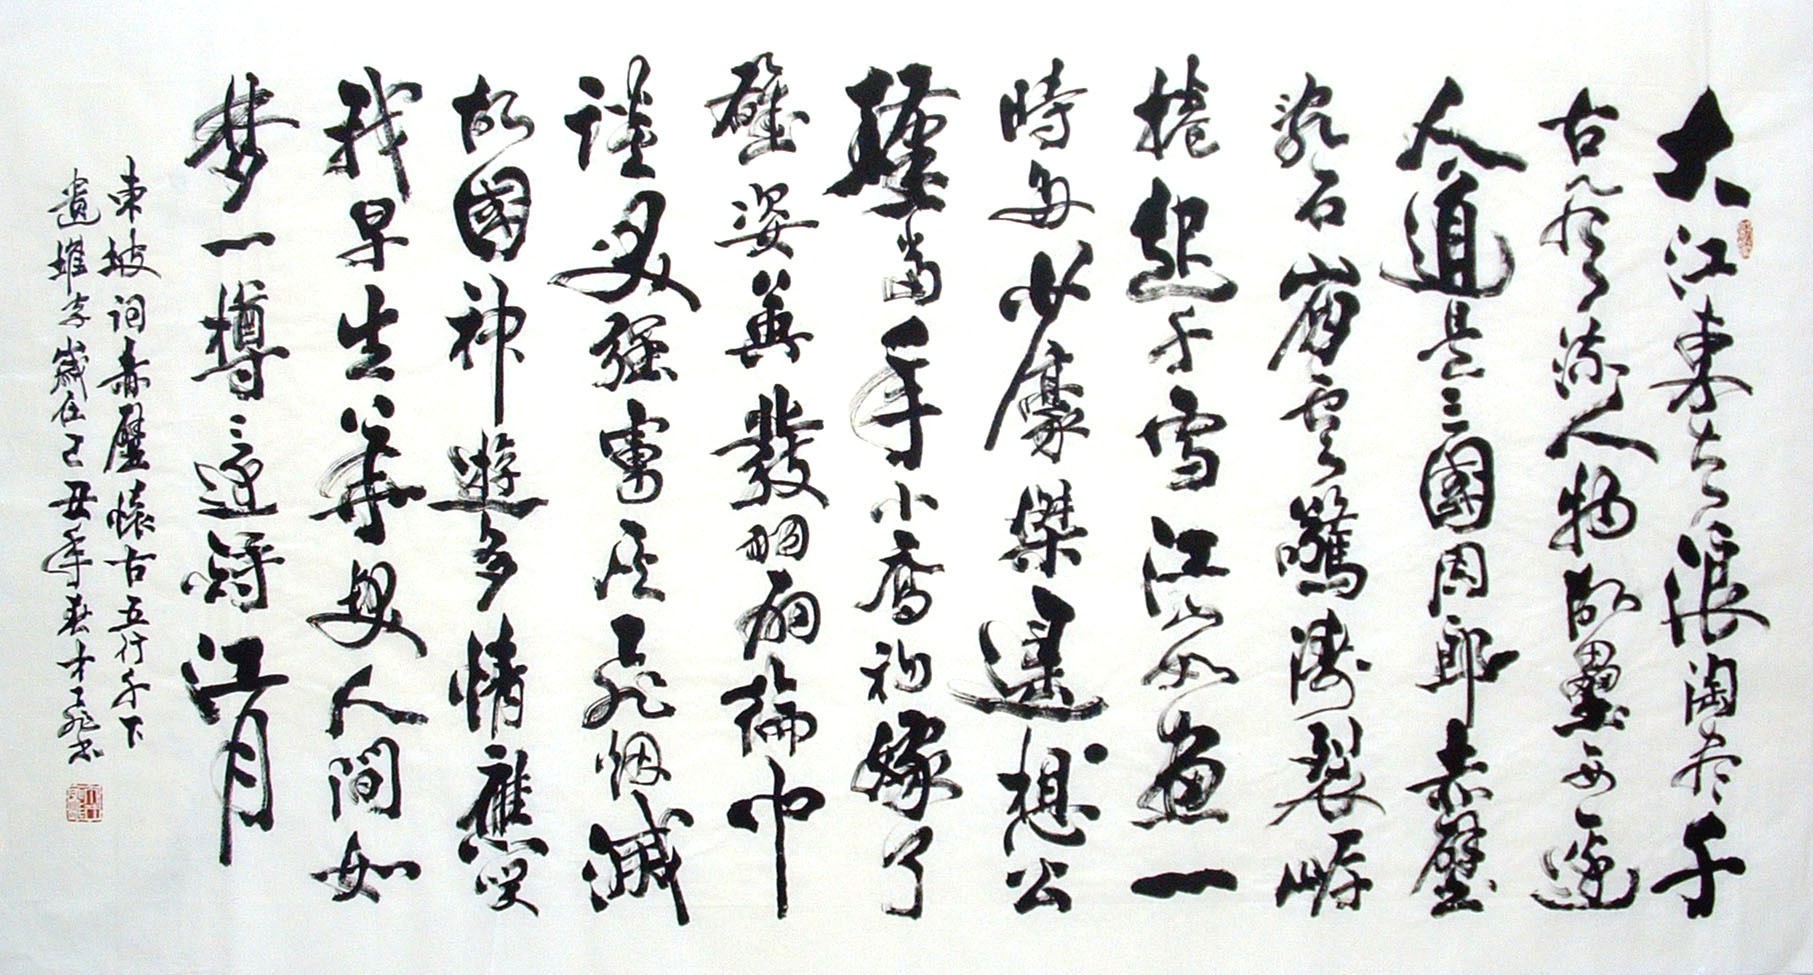 大江東去浪淘盡千
古風流人物故壘西邊
人道是三國周郎赤壁
亂石崩雲驚濤裂岸
捲起千雪江山如畫一
時多少豪傑遙想公
瑾當年小喬初嫁了
雄姿英發羽扇綸巾
談笑强虜灰飛烟滅
故國神遊多情應笑
我早生華髮人間如
梦一樽還酹江月
東坡詞赤壁懷古五行千下
遺堆字歲在己丑年春才飛書